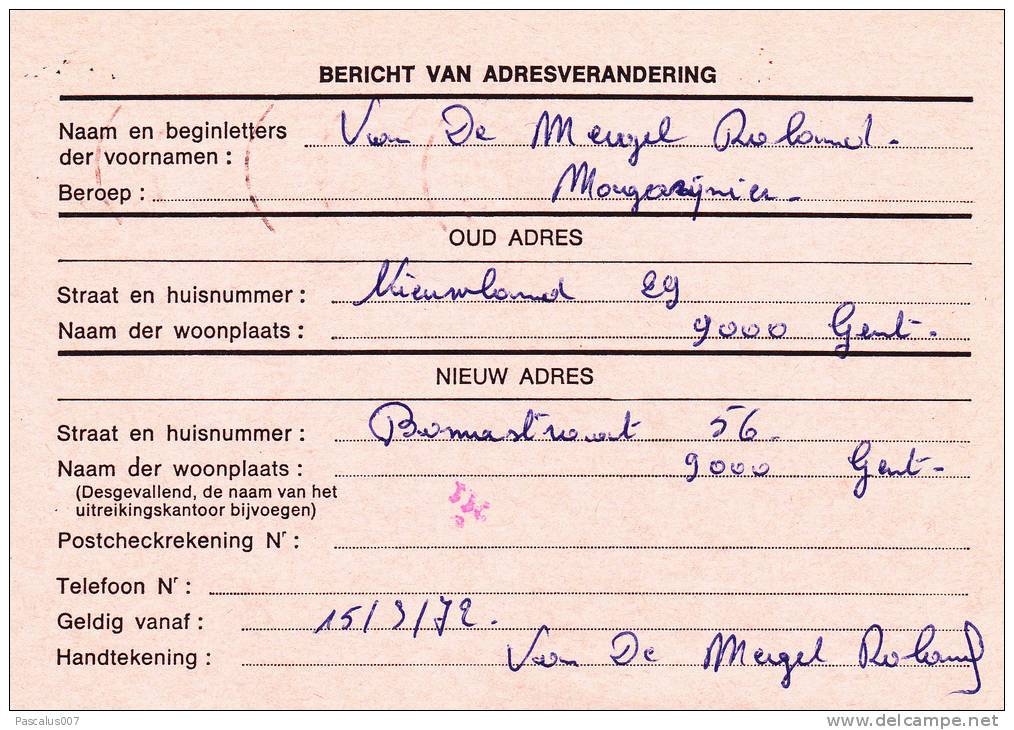 BERICHT VAN ADRESVERANDERING
Naam en beginletters Van De Mergel Roland.
der voornamen :
Beroep : Magazijnier.
OUD ADRES
Straat en huisnummer : Nieuwland 29
Naam der woonplaats : 9000 Gent.
NIEUW ADRES
Straat en huisnummer : Bomastraat 56.
Naam der woonplaats : 9000 Gent.
(Desgevallend, de naam van het
uitreikingskantoor bijvoegen)
Postcheckrekening Nr :
Telefoon Nr :
Geldig vanaf : 15/3/72.
Handtekening : Van De Mergel Roland
Pascalus007
delcampe.net